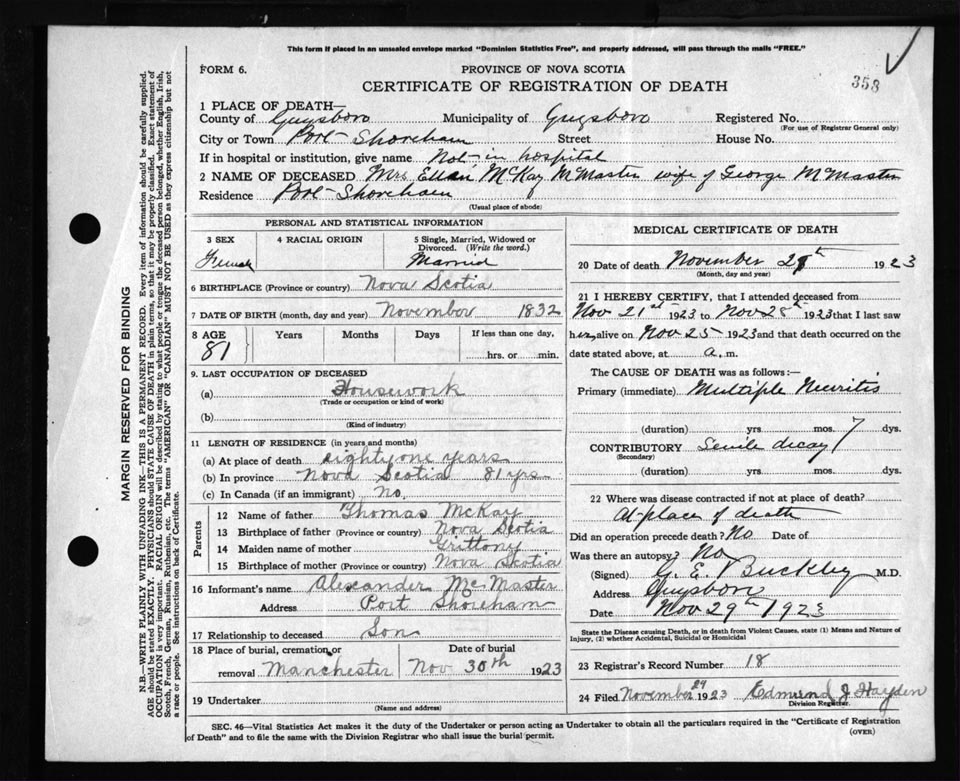 This form if placed in an unsealed envelope marked "Dominion Statistics Free", and properly addressed, will pass through the mails "FREE."
FORM 6.
PROVINCE OF NOVA SCOTIA
358
CERTIFICATE OF REGISTRATION OF DEATH
1 PLACE OF DEATH—
County of Guysboro Municipality of Guysboro Registered No.
(For use of Registrar General only)
City or Town Port Shoreham Street House No.
If in hospital or institution, give name Not in hospital
2 NAME OF DECEASED Mrs Ellen McKay McMaster wife of George McMaster
Residence Port Shoreham
(Usual place of abode)
PERSONAL AND STATISTICAL INFORMATION
3 SEX 4 RACIAL ORIGIN 5 Single, Married, Widowed or Divorced. (Write the word.)
Married
6 BIRTHPLACE (Province or country) Nova Scotia
7 DATE OF BIRTH (month, day and year) November 1832
8 AGE Years Months Days If less than one day,
81
hrs. or min.
9. LAST OCCUPATION OF DECEASED
(a) Housework
(Trade or occupation or kind of work)
(b)
(Kind of industry)
11 LENGTH OF RESIDENCE (in years and months)
(a) At place of death eighty one years
(b) In province Nova Scotia 81 yrs
(c) In Canada (if an immigrant) No.
Parents
12 Name of father Thomas McKay
13 Birthplace of father (Province or country) Nova Scotia
14 Maiden name of mother
15 Birthplace of mother (Province or country) Nova Scotia
16 Informant's name Alexander McMaster
Address Port Shoreham
17 Relationship to deceased Son
18 Place of burial, cremation or removal Manchester
Date of burial
Nov 30th 1923
19 Undertaker
(Name and address)
MEDICAL CERTIFICATE OF DEATH
20 Date of death November th 1923
(Month, day and year)
21 I HEREBY CERTIFY, that I attended deceased from
Nov 21st 1923 to Nov 28th 1923 that I last saw
her alive on Nov 25 1923 and that death occurred on the
date stated above, at a. m.
The CAUSE OF DEATH was as follows:—
Primary (immediate) Multiple Neuritis
(duration) yrs mos. 7 dys.
CONTRIBUTORY Senile decay
(Secondary)
(duration) yrs. mos. dys.
22 Where was disease contracted if not at place of death?
At place of death
Did an operation precede death? No Date of
Was there an autopsy? No
(Signed) G. E. Buckley M.D.
Address Guysboro
Date Nov 29th 1923
State the Disease causing Death, or in death from Violent Causes, state (1) Means and Nature of
Injury, (2) whether Accidental, Suicidal or Homicidal
23 Registrar's Record Number 18
24 Filed November 29 1923 Edmund J Hayden
Division Registrar.
SEC. 46—Vital Statistics Act makes it the duty of the Undertaker or person acting as Undertaker to obtain all the particulars required in the "Certificate of Registration
of Death" and to file the same with the Division Registrar who shall issue the burial permit.
(OVER)
MARGIN RESERVED FOR BINDING
N.B.—WRITE PLAINLY WITH UNFADING INK—THIS IS A PERMANENT RECORD. Every item of information should be carefully supplied.
AGE should be stated EXACTLY. PHYSICIANS should STATE CAUSE OF DEATH in plain terms, so that it may be properly classified. Exact statement of
OCCUPATION is very important. RACIAL ORIGIN will be described by stating to what people or tongue the deceased person belonged, whether English, Irish,
Scotch, French, German, Russian, Ruthenian, etc. The terms "AMERICAN" or "CANADIAN" MUST NOT BE USED as they express citizenship but not
a race or people. See instructions on back of Certificate.